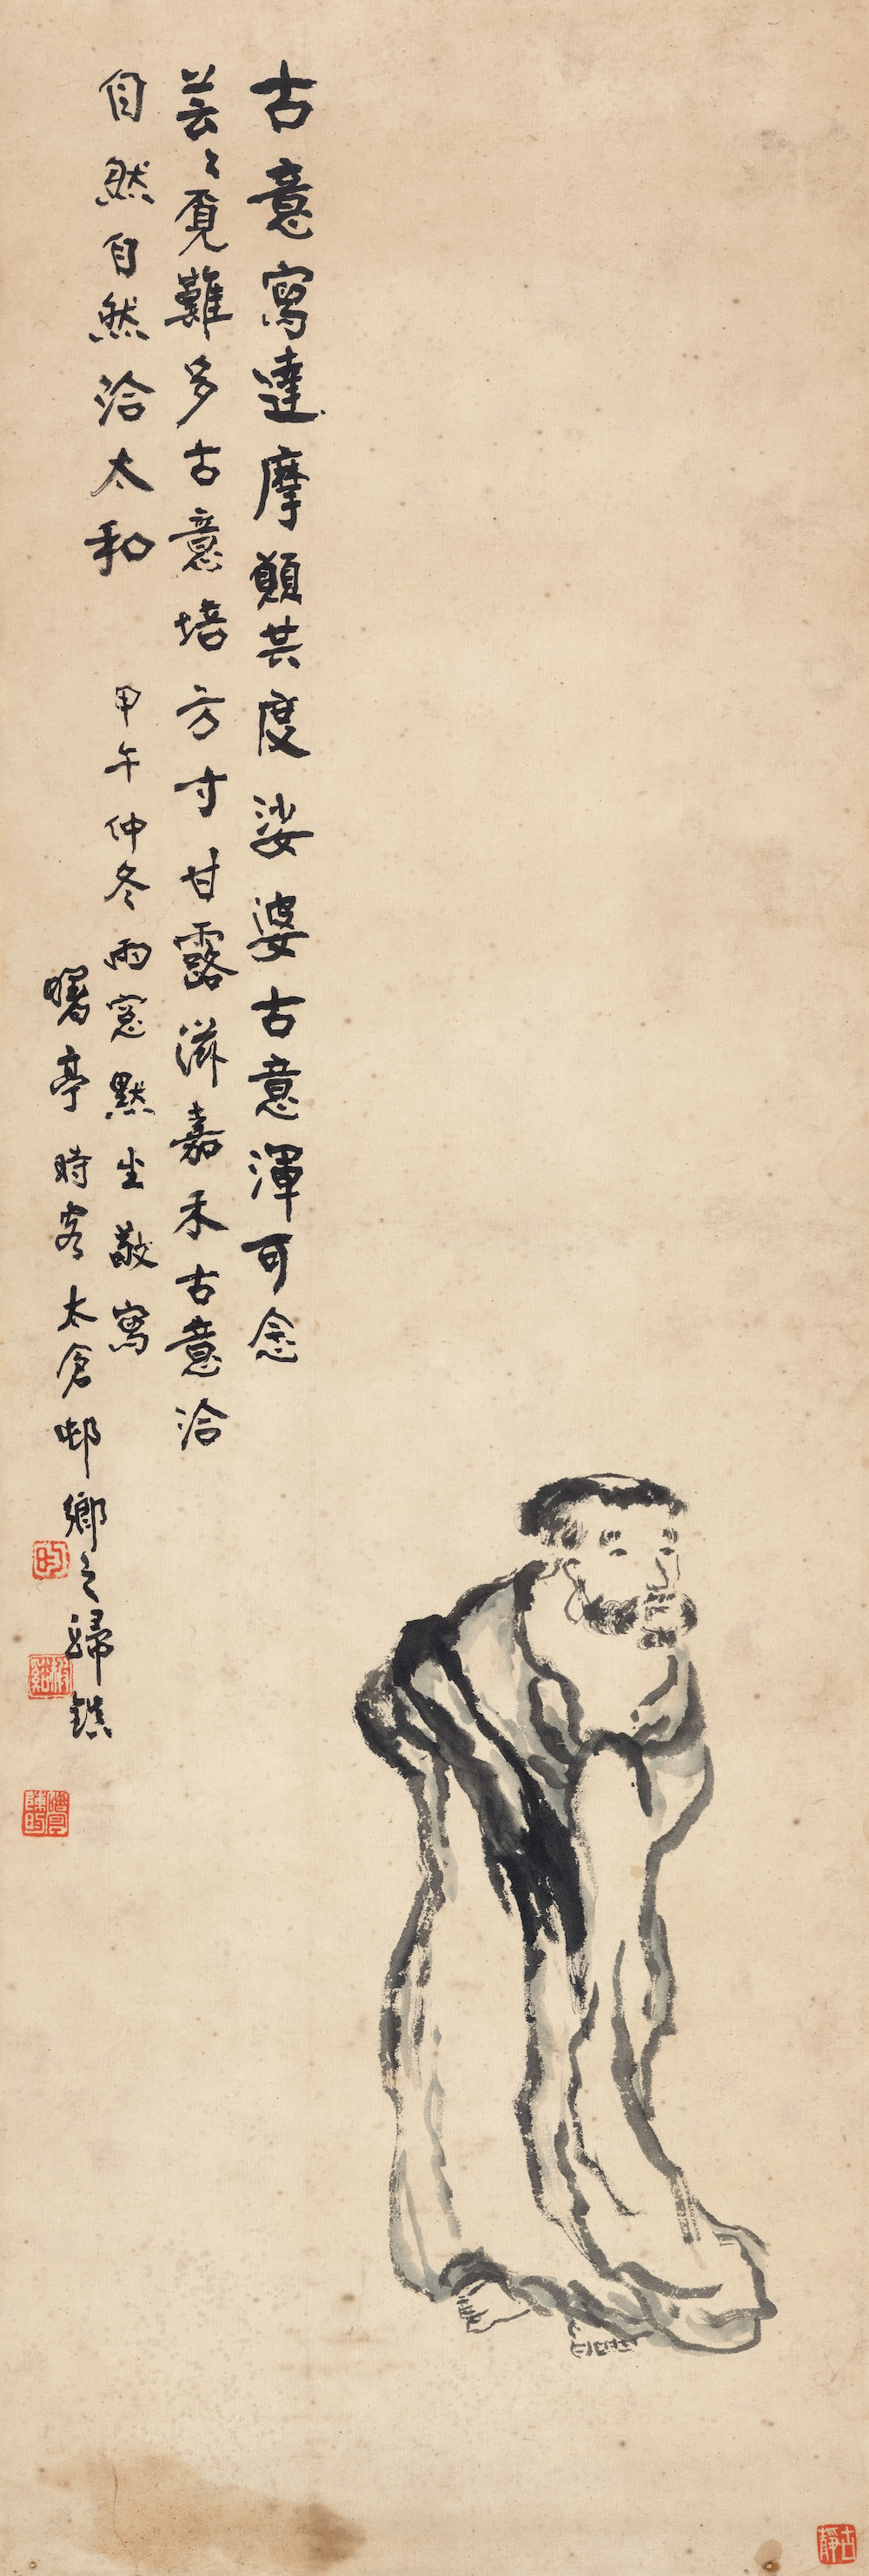 古意寫達摩願共度娑婆古意渾可念
芸〻覔難多古意培方寸甘露滋嘉禾古意洽
自然自然洽太和
甲午仲冬雨窓默坐敬寫
曙亭時客太倉邨鄉之歸鎮
昀
曙亭陳昀
古靜